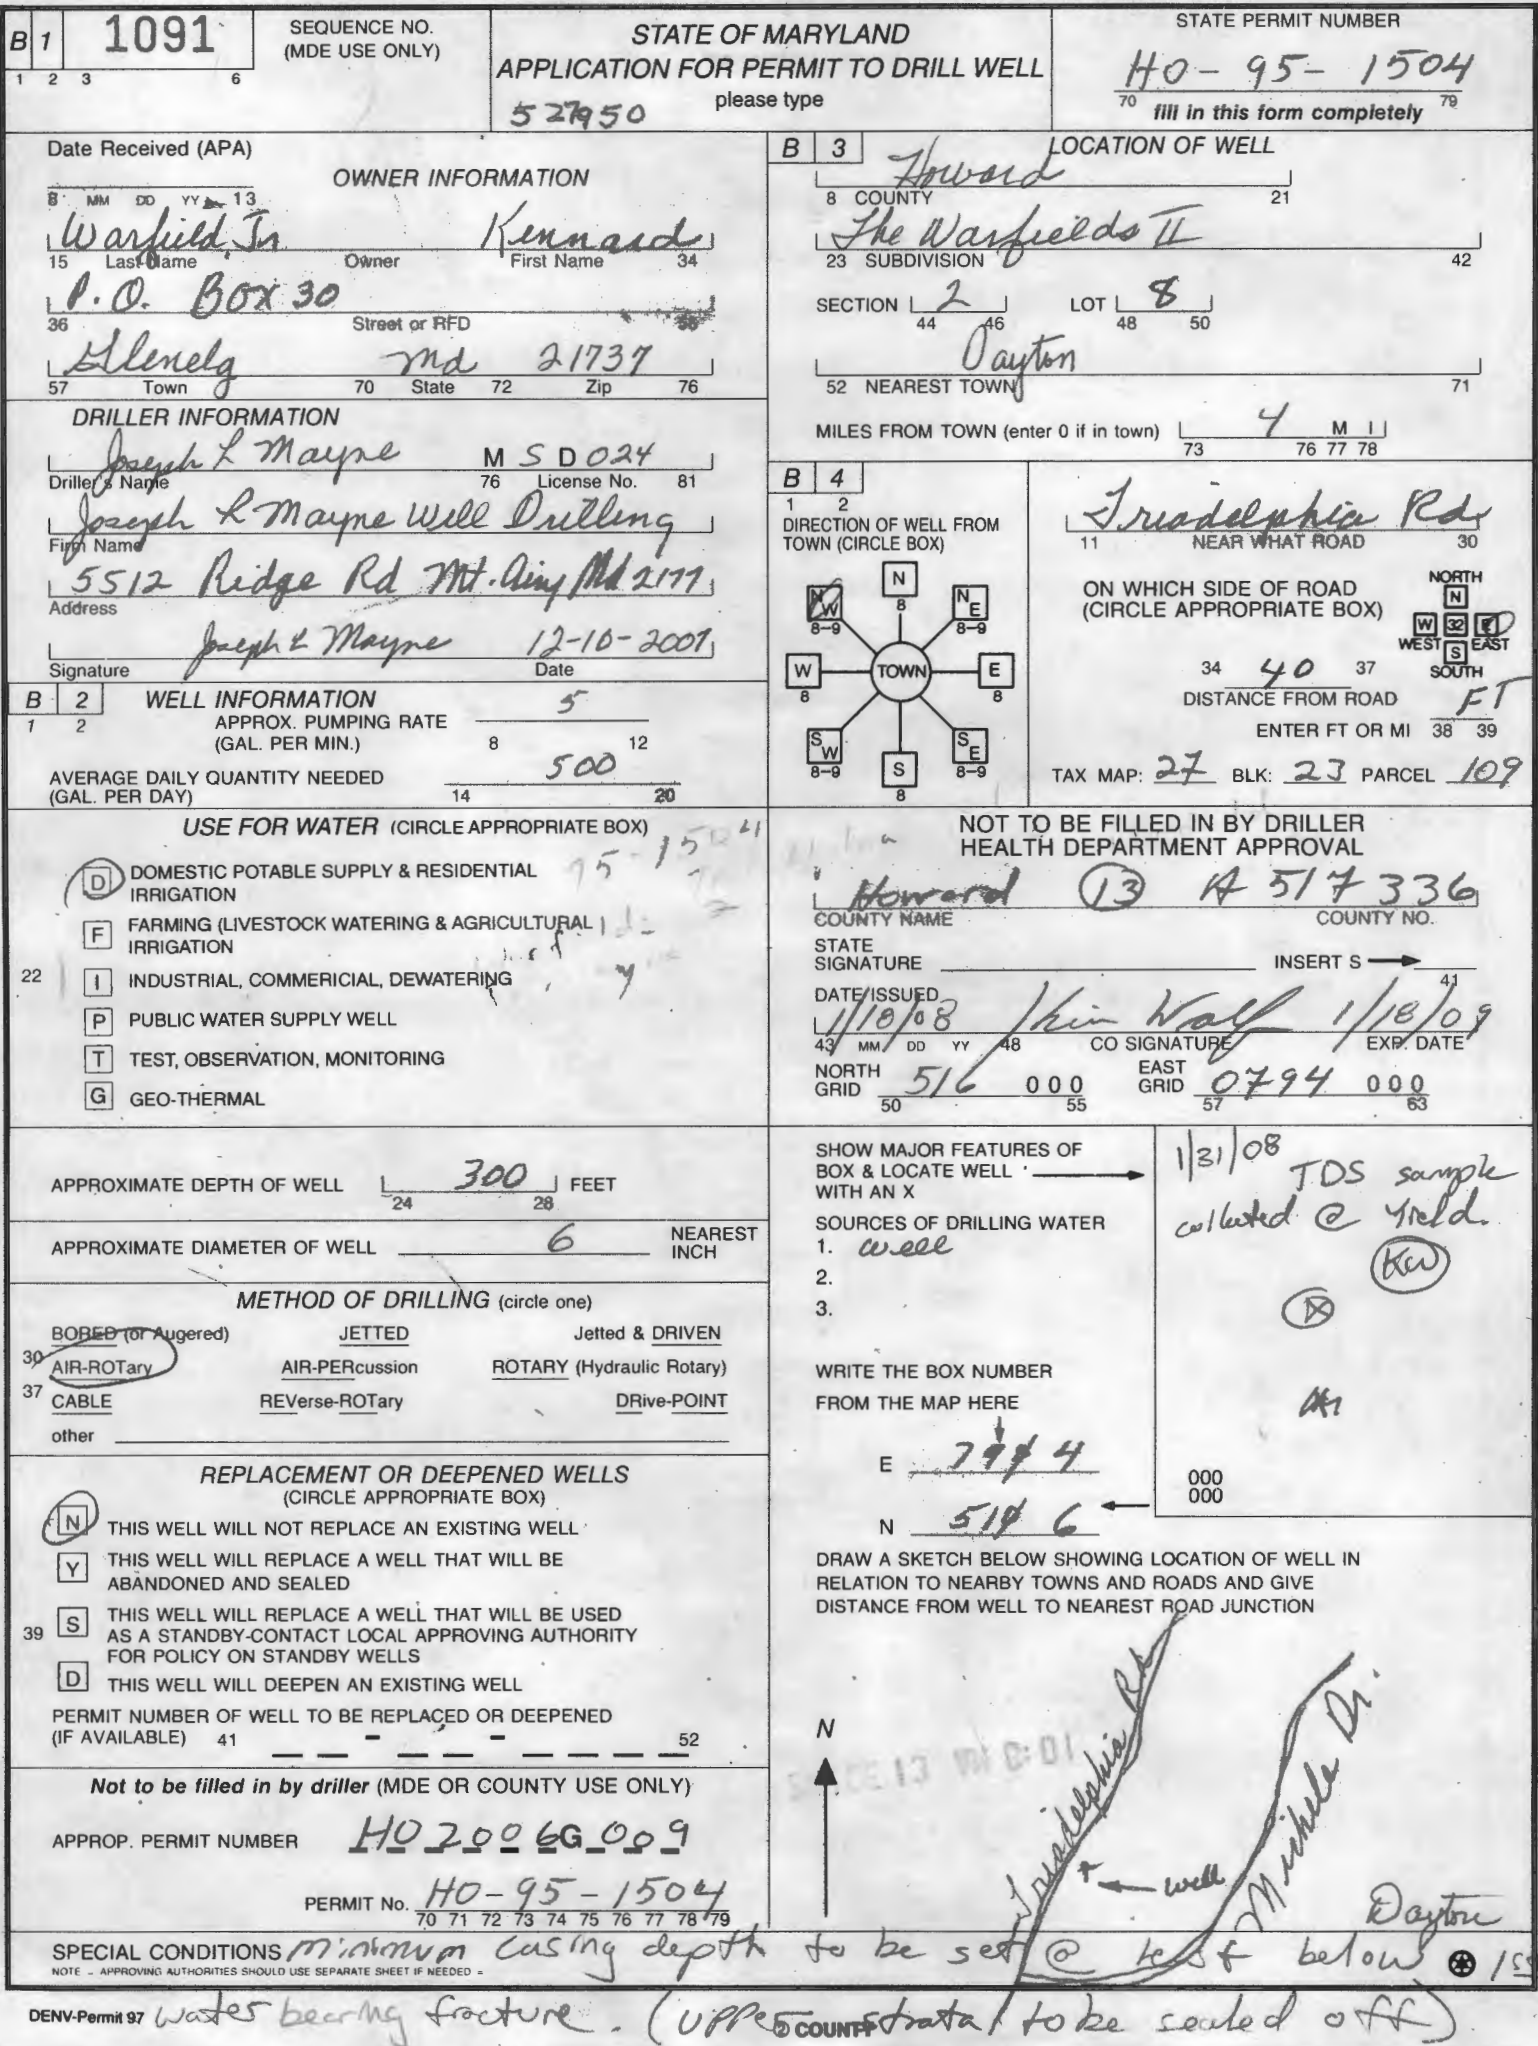 B 1 1091
1 2 3 6
SEQUENCE NO.
(MDE USE ONLY)
STATE OF MARYLAND
APPLICATION FOR PERMIT TO DRILL WELL
please type
527950
STATE PERMIT NUMBER
HO - 95 - 1504
70 fill in this form completely 79
Date Received (APA)
8 MM DD YY 13
OWNER INFORMATION
Warfield, Jr Kennard
15 Last Name Owner First Name 34
P.O. Box 30
36 Street or RFD 55
Glenelg Md 21737
57 Town 70 State 72 Zip 76
DRILLER INFORMATION
Joseph L Mayne M S D 024
Driller's Name 76 License No. 81
Joseph L Mayne Well Drilling
Firm Name
5512 Ridge Rd Mt. Airy Md 2177
Address
Joseph L Mayne 12-10-2007
Signature Date
B 2 WELL INFORMATION
1 2
APPROX. PUMPING RATE 5
(GAL. PER MIN.) 8 12
AVERAGE DAILY QUANTITY NEEDED 500
(GAL. PER DAY) 14 20
USE FOR WATER (CIRCLE APPROPRIATE BOX)
D DOMESTIC POTABLE SUPPLY & RESIDENTIAL
IRRIGATION
F FARMING (LIVESTOCK WATERING & AGRICULTURAL
IRRIGATION
22 I INDUSTRIAL, COMMERICIAL, DEWATERING
P PUBLIC WATER SUPPLY WELL
T TEST, OBSERVATION, MONITORING
G GEO-THERMAL
APPROXIMATE DEPTH OF WELL 300 FEET
24 28
APPROXIMATE DIAMETER OF WELL 6 NEAREST
INCH
METHOD OF DRILLING (circle one)
BORED (or Augered) JETTED Jetted & DRIVEN
30 AIR-ROTary AIR-PERcussion ROTARY (Hydraulic Rotary)
37 CABLE REVerse-ROTary DRive-POINT
other
REPLACEMENT OR DEEPENED WELLS
(CIRCLE APPROPRIATE BOX)
N THIS WELL WILL NOT REPLACE AN EXISTING WELL
Y THIS WELL WILL REPLACE A WELL THAT WILL BE
ABANDONED AND SEALED
39 S THIS WELL WILL REPLACE A WELL THAT WILL BE USED
AS A STANDBY-CONTACT LOCAL APPROVING AUTHORITY
FOR POLICY ON STANDBY WELLS
D THIS WELL WILL DEEPEN AN EXISTING WELL
PERMIT NUMBER OF WELL TO BE REPLACED OR DEEPENED
(IF AVAILABLE) 41 - - 52
Not to be filled in by driller (MDE OR COUNTY USE ONLY)
APPROP. PERMIT NUMBER HO 2006 G 009
PERMIT No. HO-95-1504
70 71 72 73 74 75 76 77 78 79
B 3 LOCATION OF WELL
Howard
8 COUNTY 21
The Warfields II
23 SUBDIVISION 42
SECTION 2 LOT 8
44 46 48 50
Dayton
52 NEAREST TOWN 71
MILES FROM TOWN (enter 0 if in town) 4 M I
73 76 77 78
B 4
1 2
DIRECTION OF WELL FROM
TOWN (CIRCLE BOX)
NW 8-9 N 8 NE 8-9
W 8 TOWN E 8
SW 8-9 S 8 SE 8-9
Triadelphia Rd
11 NEAR WHAT ROAD 30
ON WHICH SIDE OF ROAD
(CIRCLE APPROPRIATE BOX)
NORTH
N
W 32 E
WEST S EAST
SOUTH
34 40 37
DISTANCE FROM ROAD
ENTER FT OR MI FT
38 39
TAX MAP: 27 BLK: 23 PARCEL 109
NOT TO BE FILLED IN BY DRILLER
HEALTH DEPARTMENT APPROVAL
Howard 13 A 517336
COUNTY NAME COUNTY NO.
STATE
SIGNATURE INSERT S 41
DATE ISSUED
1/18/08 Kim Wolf 1/18/09
43 MM DD YY 48 CO SIGNATURE EXP. DATE
NORTH
GRID 516 000
50 55
EAST
GRID 0794 000
57 63
SHOW MAJOR FEATURES OF
BOX & LOCATE WELL
WITH AN X
SOURCES OF DRILLING WATER
1. well
2.
3.
1/31/08 TDS sample
collected @ Yield.
KW
WRITE THE BOX NUMBER
FROM THE MAP HERE
E 794 4
N 51 6
000
000
DRAW A SKETCH BELOW SHOWING LOCATION OF WELL IN
RELATION TO NEARBY TOWNS AND ROADS AND GIVE
DISTANCE FROM WELL TO NEAREST ROAD JUNCTION
N
Triadelphia Rd
Michele Dr.
well
Dayton
SPECIAL CONDITIONS minimum casing depth to be set @ least below 1st
NOTE - APPROVING AUTHORITIES SHOULD USE SEPARATE SHEET IF NEEDED =
DENV-Permit 97 water bearing fracture. (upper strata to be sealed off)
COUNTY